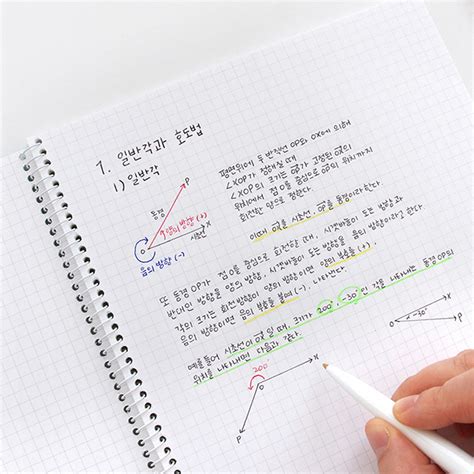 1. 일반각과 호도법
1) 일반각
P
동경
양의 방향 (+)
O
시초선
X
음의 방향 (-)
평면위에 두 반직선 OP와 OX에 의해
∠XOP가 정해질 때
∠XOP의 크기는 OX가 고정된 OX의
위치에서 점 O를 중심으로 OP의 위치까지
회전한 양으로 정한다.
이때 OX를 시초선, OP를 동경이라한다.
또 동경 OP가 점 O를 중심으로 회전할 때, 시곗바늘이 도는 방향과
반대인 방향을 양의 방향, 시곗바늘이 도는 방향을 음의 방향이라고 한다.
각의 크기는 회전방향이 양의 방향이면 양의 부호 (+),
음의 방향이면 음의 부호를 붙여 (-), 나타낸다.
예를들어 시초선이 OX 일 때, 크기가 200° -30° 인 각을 나타내는 동경 OP의
위치를 나타내면 다음과 같다.
200°
O
X
P
O
-30°
X
P